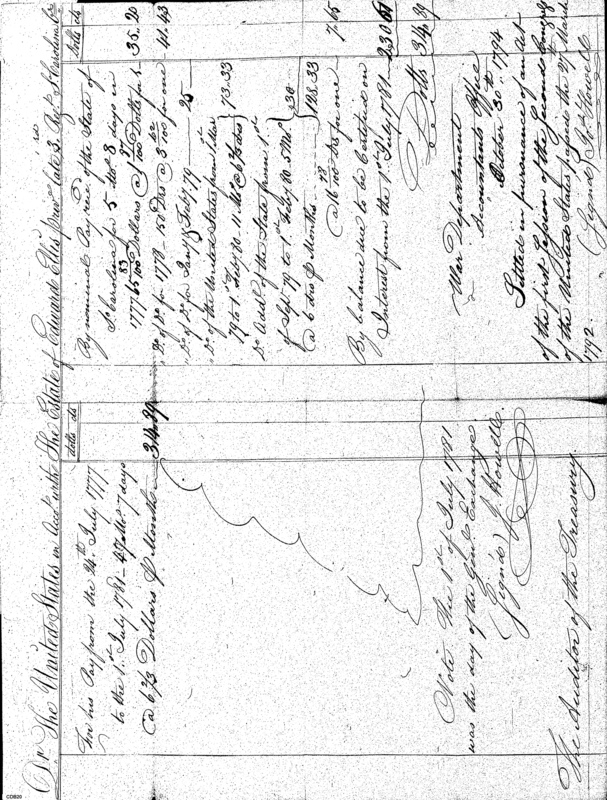 Dr. The United States in Acct. with The Estate of Edward Ellis late 3. Regt. So Carolina Cr.
dolls cts
For his Pay from the 24th July 1777
to the 1st July 1781 - 47 Mos 7 days
@ 6 2/3 Dollars P Month 314.89
Note The 1st of July 1781
was the day of the Genl Exchange
Signd J. Howell
The Auditor of the Treasury.
dolls cts
By nominal Pay, of the State of
So Carolina for 5 Mos 8 days in
1777 Dollars @ Dollars for 1. 35.20
Do. of Do. for 1778 - 150 Drs @ for one 41.43
Do. of Do. for Jany & Feby 79 25
Do. of the United States from
79 to 1. Feby 80. 11 Mos 73.33
Do. Addl. of the State from 1st
of Sept 79 to 1st Feby 80. 5 Mos 30
@ 6 drs P Month 128.33
@ for one 7.65
By balance due to be Certified on
Interest from the 1st July 1781 230.61
Dolls 314.89
War Department
Accountants Office
October 30th 1794
Settled in pursuance of an Act
of the first Session of the Second Congress
of the United States passed the 27th March
1792.
Signd Jos. Howell
CDB20